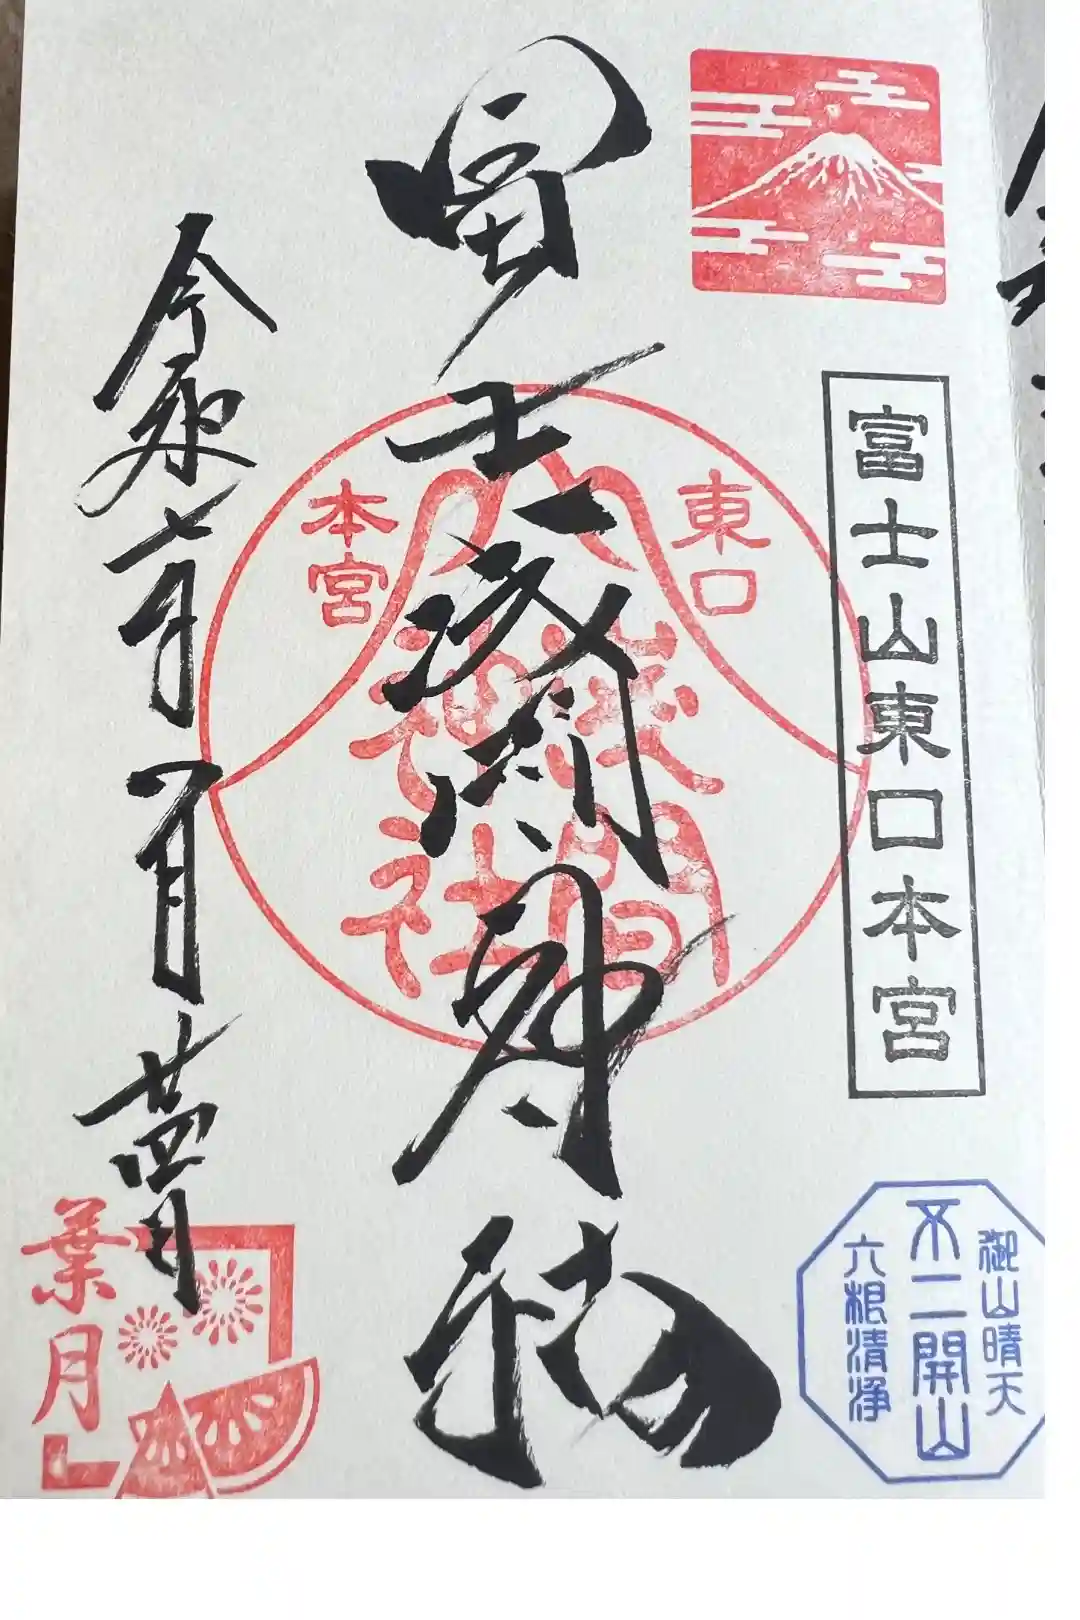 富士山東口本宮
御山晴天
不二開山
六根清浄
冨士浅間神社
東口
本宮
淺間
神社
令和七年八月廿四日
葉月